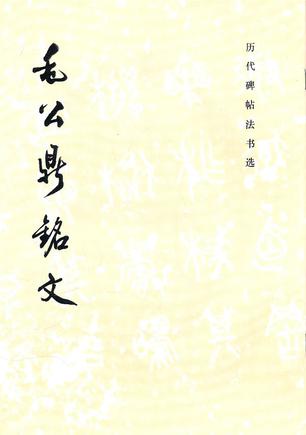 历代碑帖法书选
毛公鼎铭文